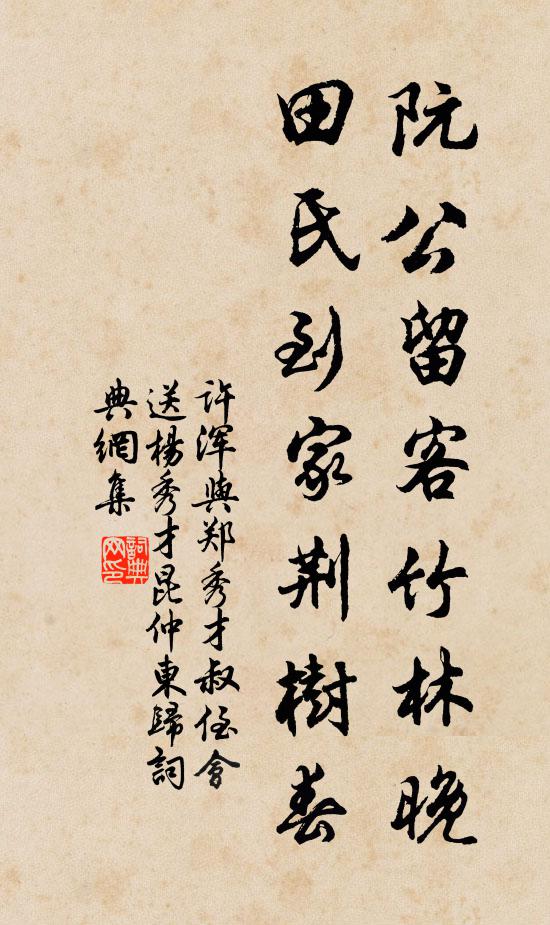 阮公留客竹林晚
田氏到家荆樹春
许渾與郑秀才叔侄會
送楊秀才昆仲東歸詞
典網集
詞典網印